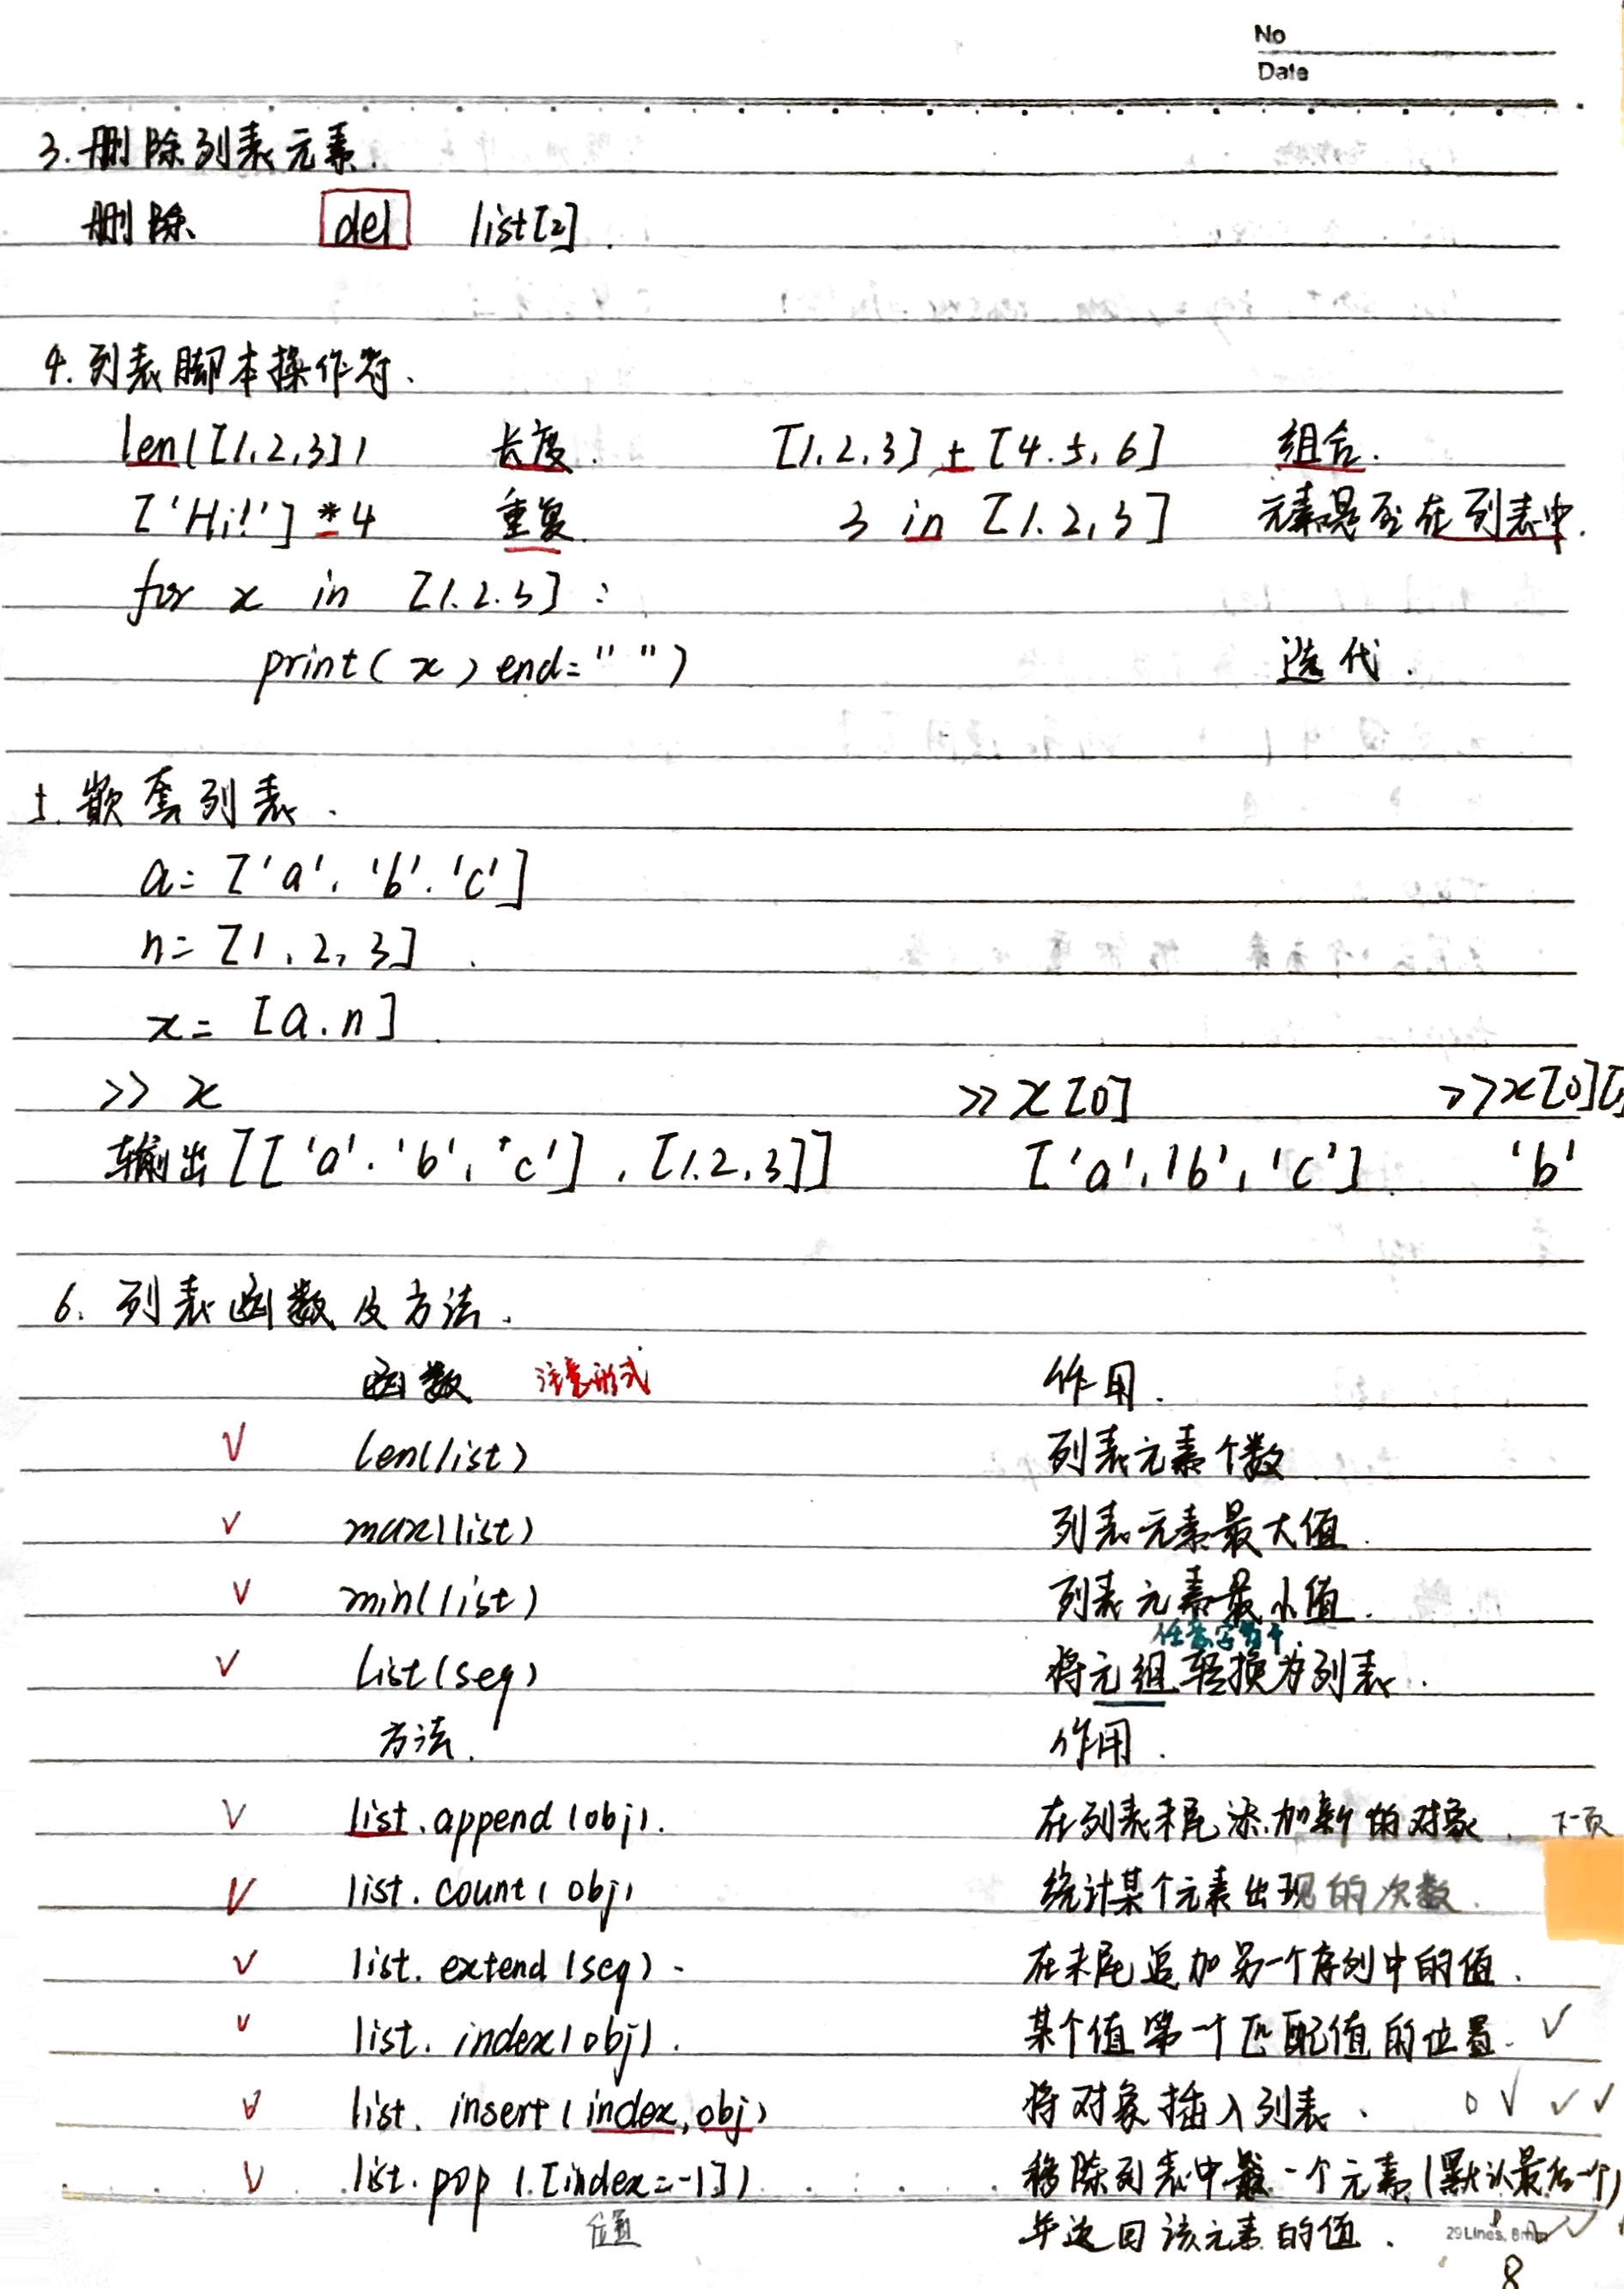 No
Date
3. 删除列表元素.
删除 del list[2].
4. 列表脚本操作符.
len([1,2,3]) 长度. [1,2,3] + [4,5,6] 组合.
['Hi!'] * 4 重复. 3 in [1,2,3] 元素是否在列表中.
for x in [1,2,3]:
print(x) end=" ") 迭代.
5. 嵌套列表.
a= ['a', 'b', 'c']
n= [1, 2, 3].
x= [a, n]
>> x >> x[0] >>x[0][
输出 [['a', 'b', 'c'], [1,2,3]] ['a', 'b', 'c'] 'b'
6. 列表函数及方法.
函数 注意形式 作用.
√ len(list) 列表元素个数.
√ max(list) 列表元素最大值.
√ min(list) 列表元素最小值.
√ list(seq) 将元组转换为列表.
方法. 作用.
√ list.append(obj). 在列表末尾添加新的对象. 下一页
√ list.count(obj) 统计某个元素出现的次数.
√ list.extend(seq). 在末尾追加另一个序列中的值.
√ list.index(obj). 某个值第一个匹配值的位置. √
√ list.insert(index,obj) 将对象插入列表. 0 √ √ √
√ list.pop([index=-1]) 移除列表中 一个元素(默认最后一个)
位置 并返回该元素的值. 29 Lines, 8mm
8